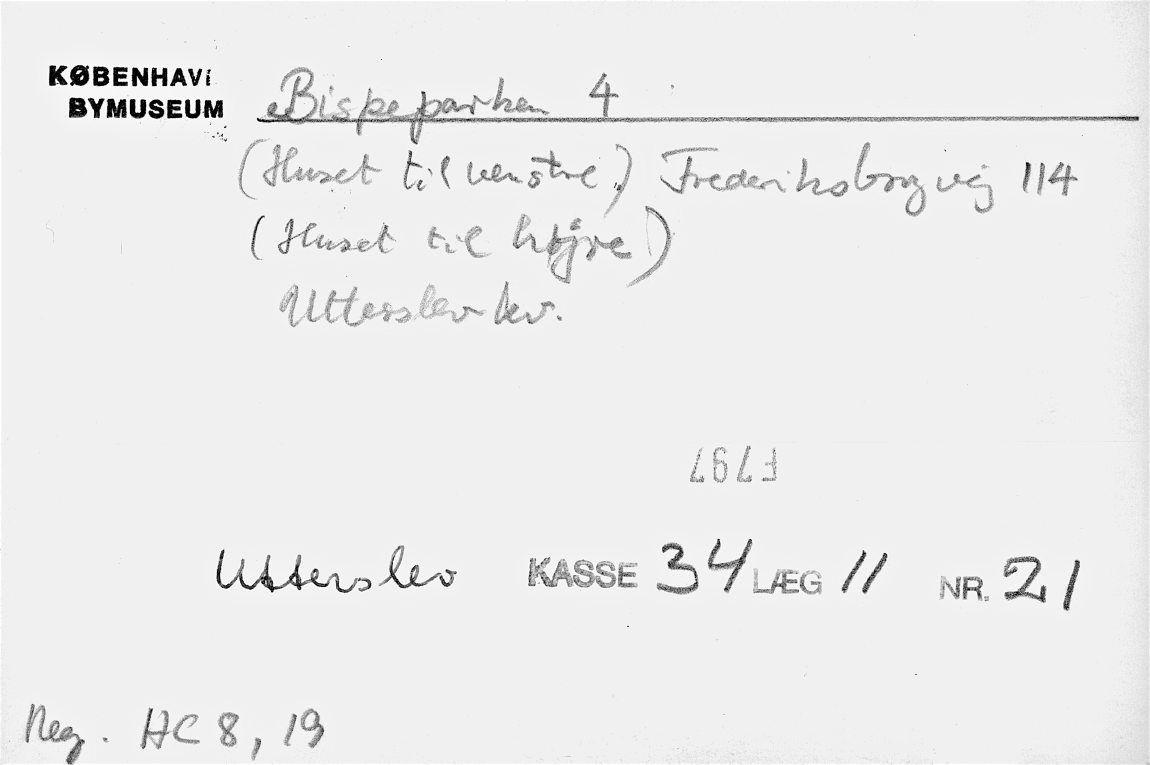 KØBENHAVí
BYMUSEUM
Bispeparken 4
(Huset til venstre) Frederiksborgvej 114
(Huset til højre)
Utterslev kv.
F797
Utterslev KASSE 34 LÆG 11 NR. 21
Neg. HC 8, 19